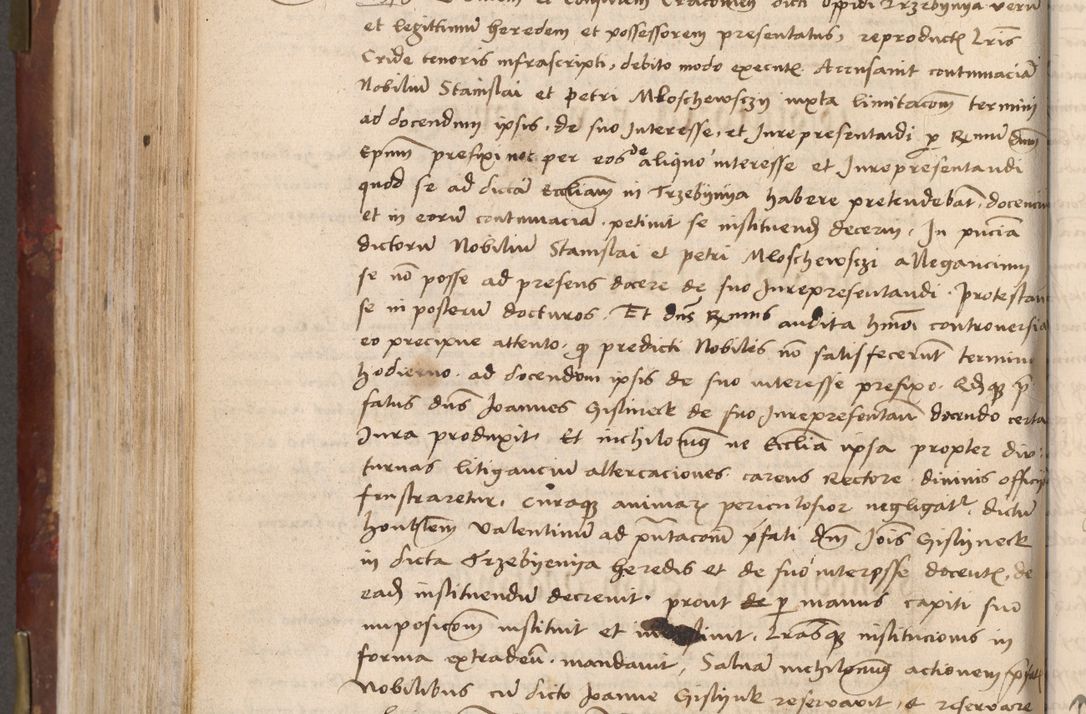 et Consulem Cracovien dicti oppidi Trzebynya verũ
et legittimũ heredem et possessorem presentatus, reproductꝭ Lrĩs
Cride tenoris infrascripti, debito modo executꝭ Accusavit contumaciã
Nobiliũ Stanislai et Petri Mloschewsczy iuxta limitacõm termini
ad docendum ipsis, de suo Interesse, et Iurepresentandi p Rmũ dnm̃
Epm̃ prefixi not per eos de aliquo interesse et Iurepresentandi
quod se ad dictã Eccliam in Trzebynya habere pretendebãt, docenciũ
et in eorũ contumaciã petivit se instituendꝭ decerni, In pñcia
dictorũ Nobiliũ Stanislai et Petri Mloschewsczi allegancium
se nõ posse ad presens docere de suo Iurepresentandi protestañ
se in posterũ docturos. Et dns̃ Rmus audita hmõi controversia
eo precipue attento, q̃ predicti Nobiles nõ satisfecerũt termino
hodierno ad docendum ipsis de suo interesse prefixo, Idqꝫ p̃
fatus dns̃ Joannes Gislineck de suo Iurepresentañ docendo certa
Iura produxit Et nichilomig ne Ecclia ipsa propter diu
turnas litiganciũ altercaciones, carens Rectore divinis officijs
frustraretur, Curaqꝫ animarꝭ periculosior negligatr̃, dictũ
Valentinũ ad pñtacõm p̃fati dnĩ Jois̃ Gislyneck
in dicta Trzebyenya heredis et de suo interesse docentꝭ, de
eadꝭ instituendũ decrevit, prout p manus capiti suo
imposicõm instituit et Lrãsqꝫ institucionis in
forma extradeñ mandavit, Salva nichilomig actionem p̃fatꝭ
Nobilibus cũ dicto Joanne Gislynk reservavit, et reservare